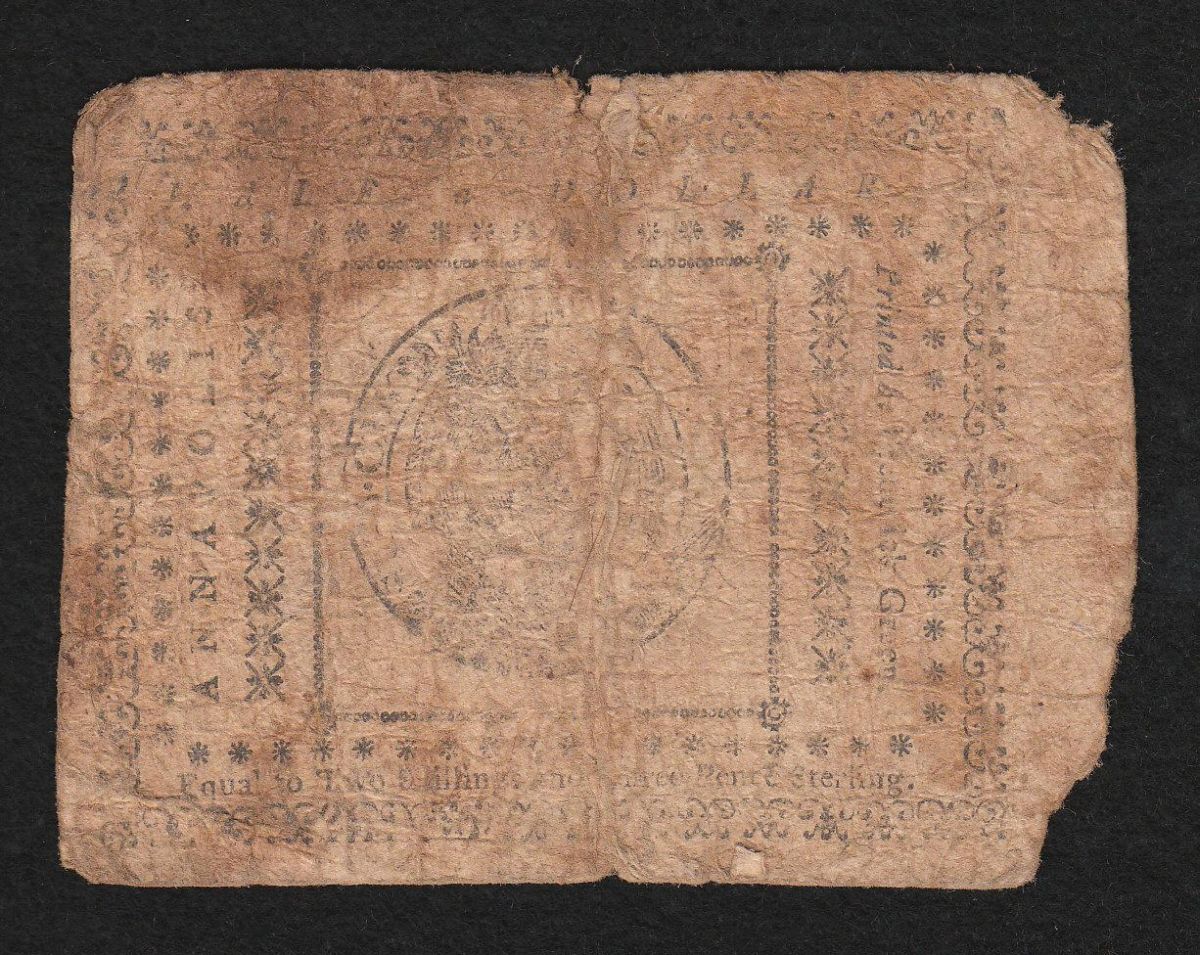 HALF a DOLLAR
ANNAPOLIS
Printed by Frederick Green.
Equal to Two Shillings and Three Pence Sterling.